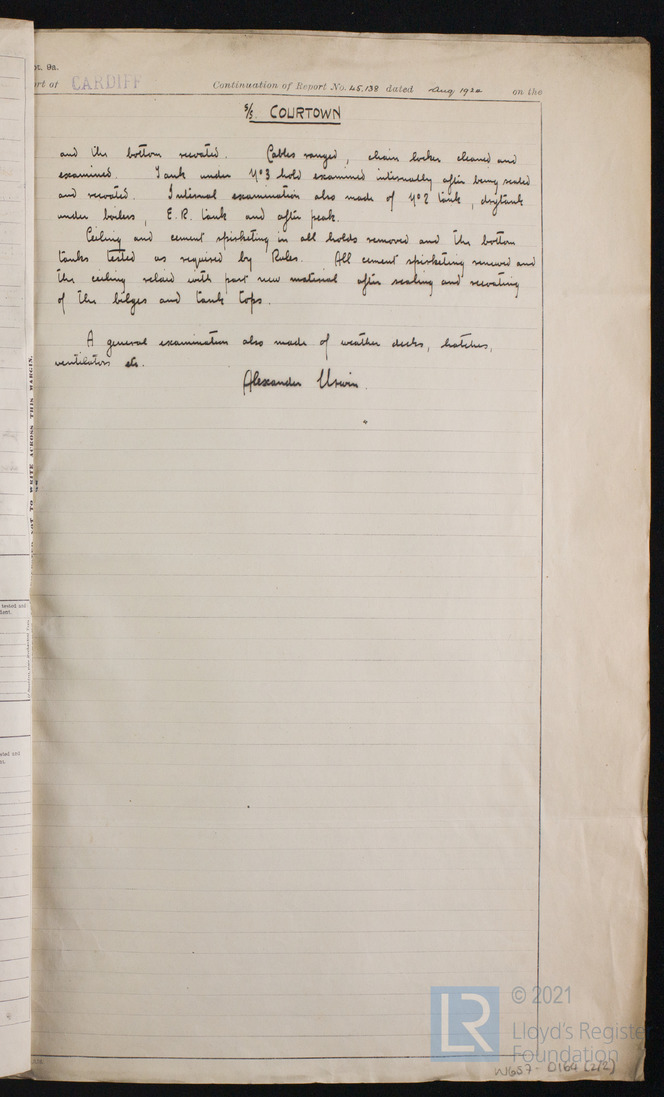 pt. 9a.
rt of CARDIFF Continuation of Report No. 45,138 dated Aug 192 on the
S/S. COURTOWN
and the bottom recoated. Cables ranged, chain locker cleaned and
examined. Tank under No 3 hold examined internally after being scaled
and recoated. Internal examination also made of No 2 tank, drytank
under boilers, E.R. tank and after peak.
Ceiling and cement spirketing in all holds removed and the bottom
tanks tested as required by Rules. All cement spirketing renewed and
the ceiling relaid with part new material after scaling and recoating
of the bilges and tank tops.
A general examination also made of weather decks, hatches,
ventilators etc.
Alexander Urwin.
NOT TO WRITE ACROSS THIS MARGIN.
tested and
© 2021
LR
Lloyd's Register
Foundation
W657-0164 (2/2)